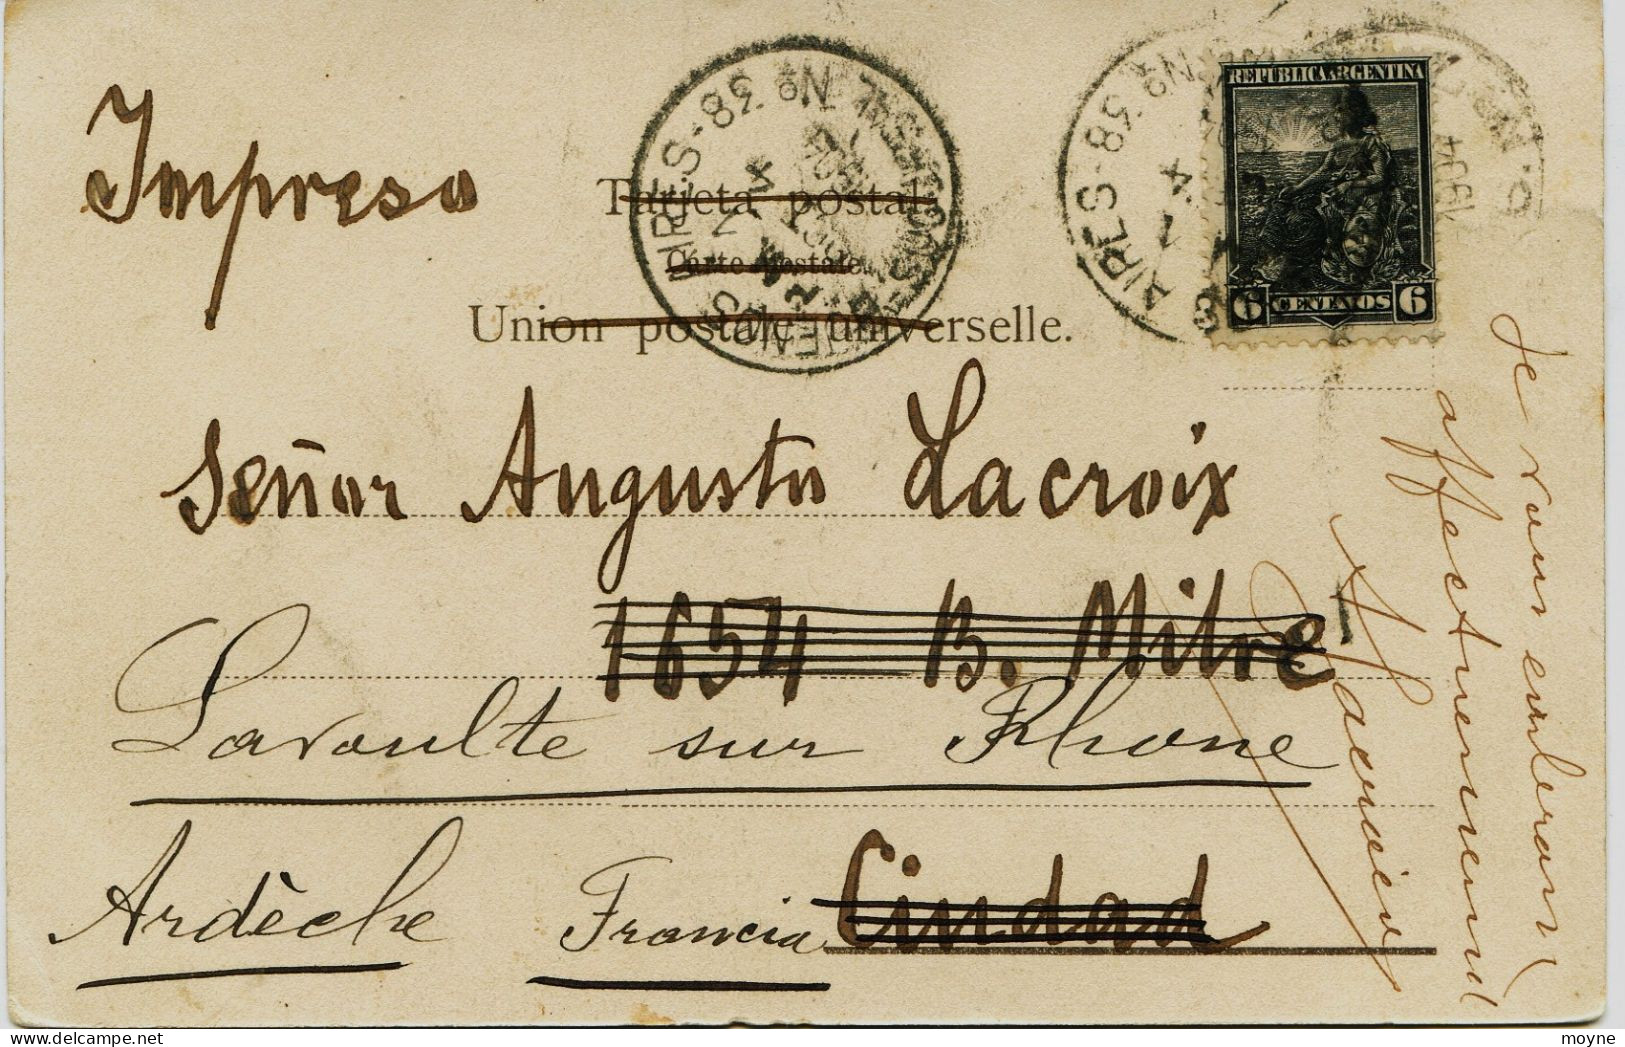 Impreso
Tarjeta postal.
Carte postale.
Union postale universelle.
Nº 38
AIRES - 38 Nº
1904
REPUBLICA ARGENTINA
6 CENTAVOS 6
Señor Augusto Lacroix
1654 B. Mitre
Lavoulte sur Rhone
Ardèche Francia Ciudad
Je vous embrasse
affectueusement
moyne